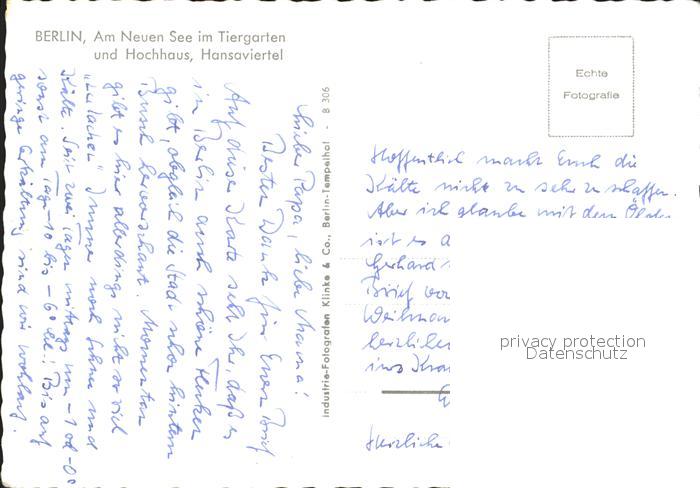 BERLIN, Am Neuen See im Tiergarten
und Hochhaus, Hansaviertel
Echte
Fotografie
Industrie-Fotografen Klinke & Co., Berlin-Tempelhof - B 306
Lieber Papa, liebe Mama!
Besten Dank für Euren Brief.
Auf dieser Karte seht Ihr, daß es
in Berlin auch schöne Flecken
gibt, obgleich die Stadt schon hinterm
Busch hervorschaut. Momentan
gibt es hier allerdings nicht so viel
"zu lachen". Immer noch Schnee und
Kälte. Seit zwei Tagen mittags um -1 od. -0°
sonst am Tage -10 bis -6°! Bis auf
geringe Erkältung sind wir wohlauf.
Hoffentlich macht Euch die
Kälte nicht zu sehr zu schaffen.
Aber ich glaube mit dem
ist es
Gerhard
Brief
Weihna
herzliche
ins
Herzliche
privacy protection
Datenschutz